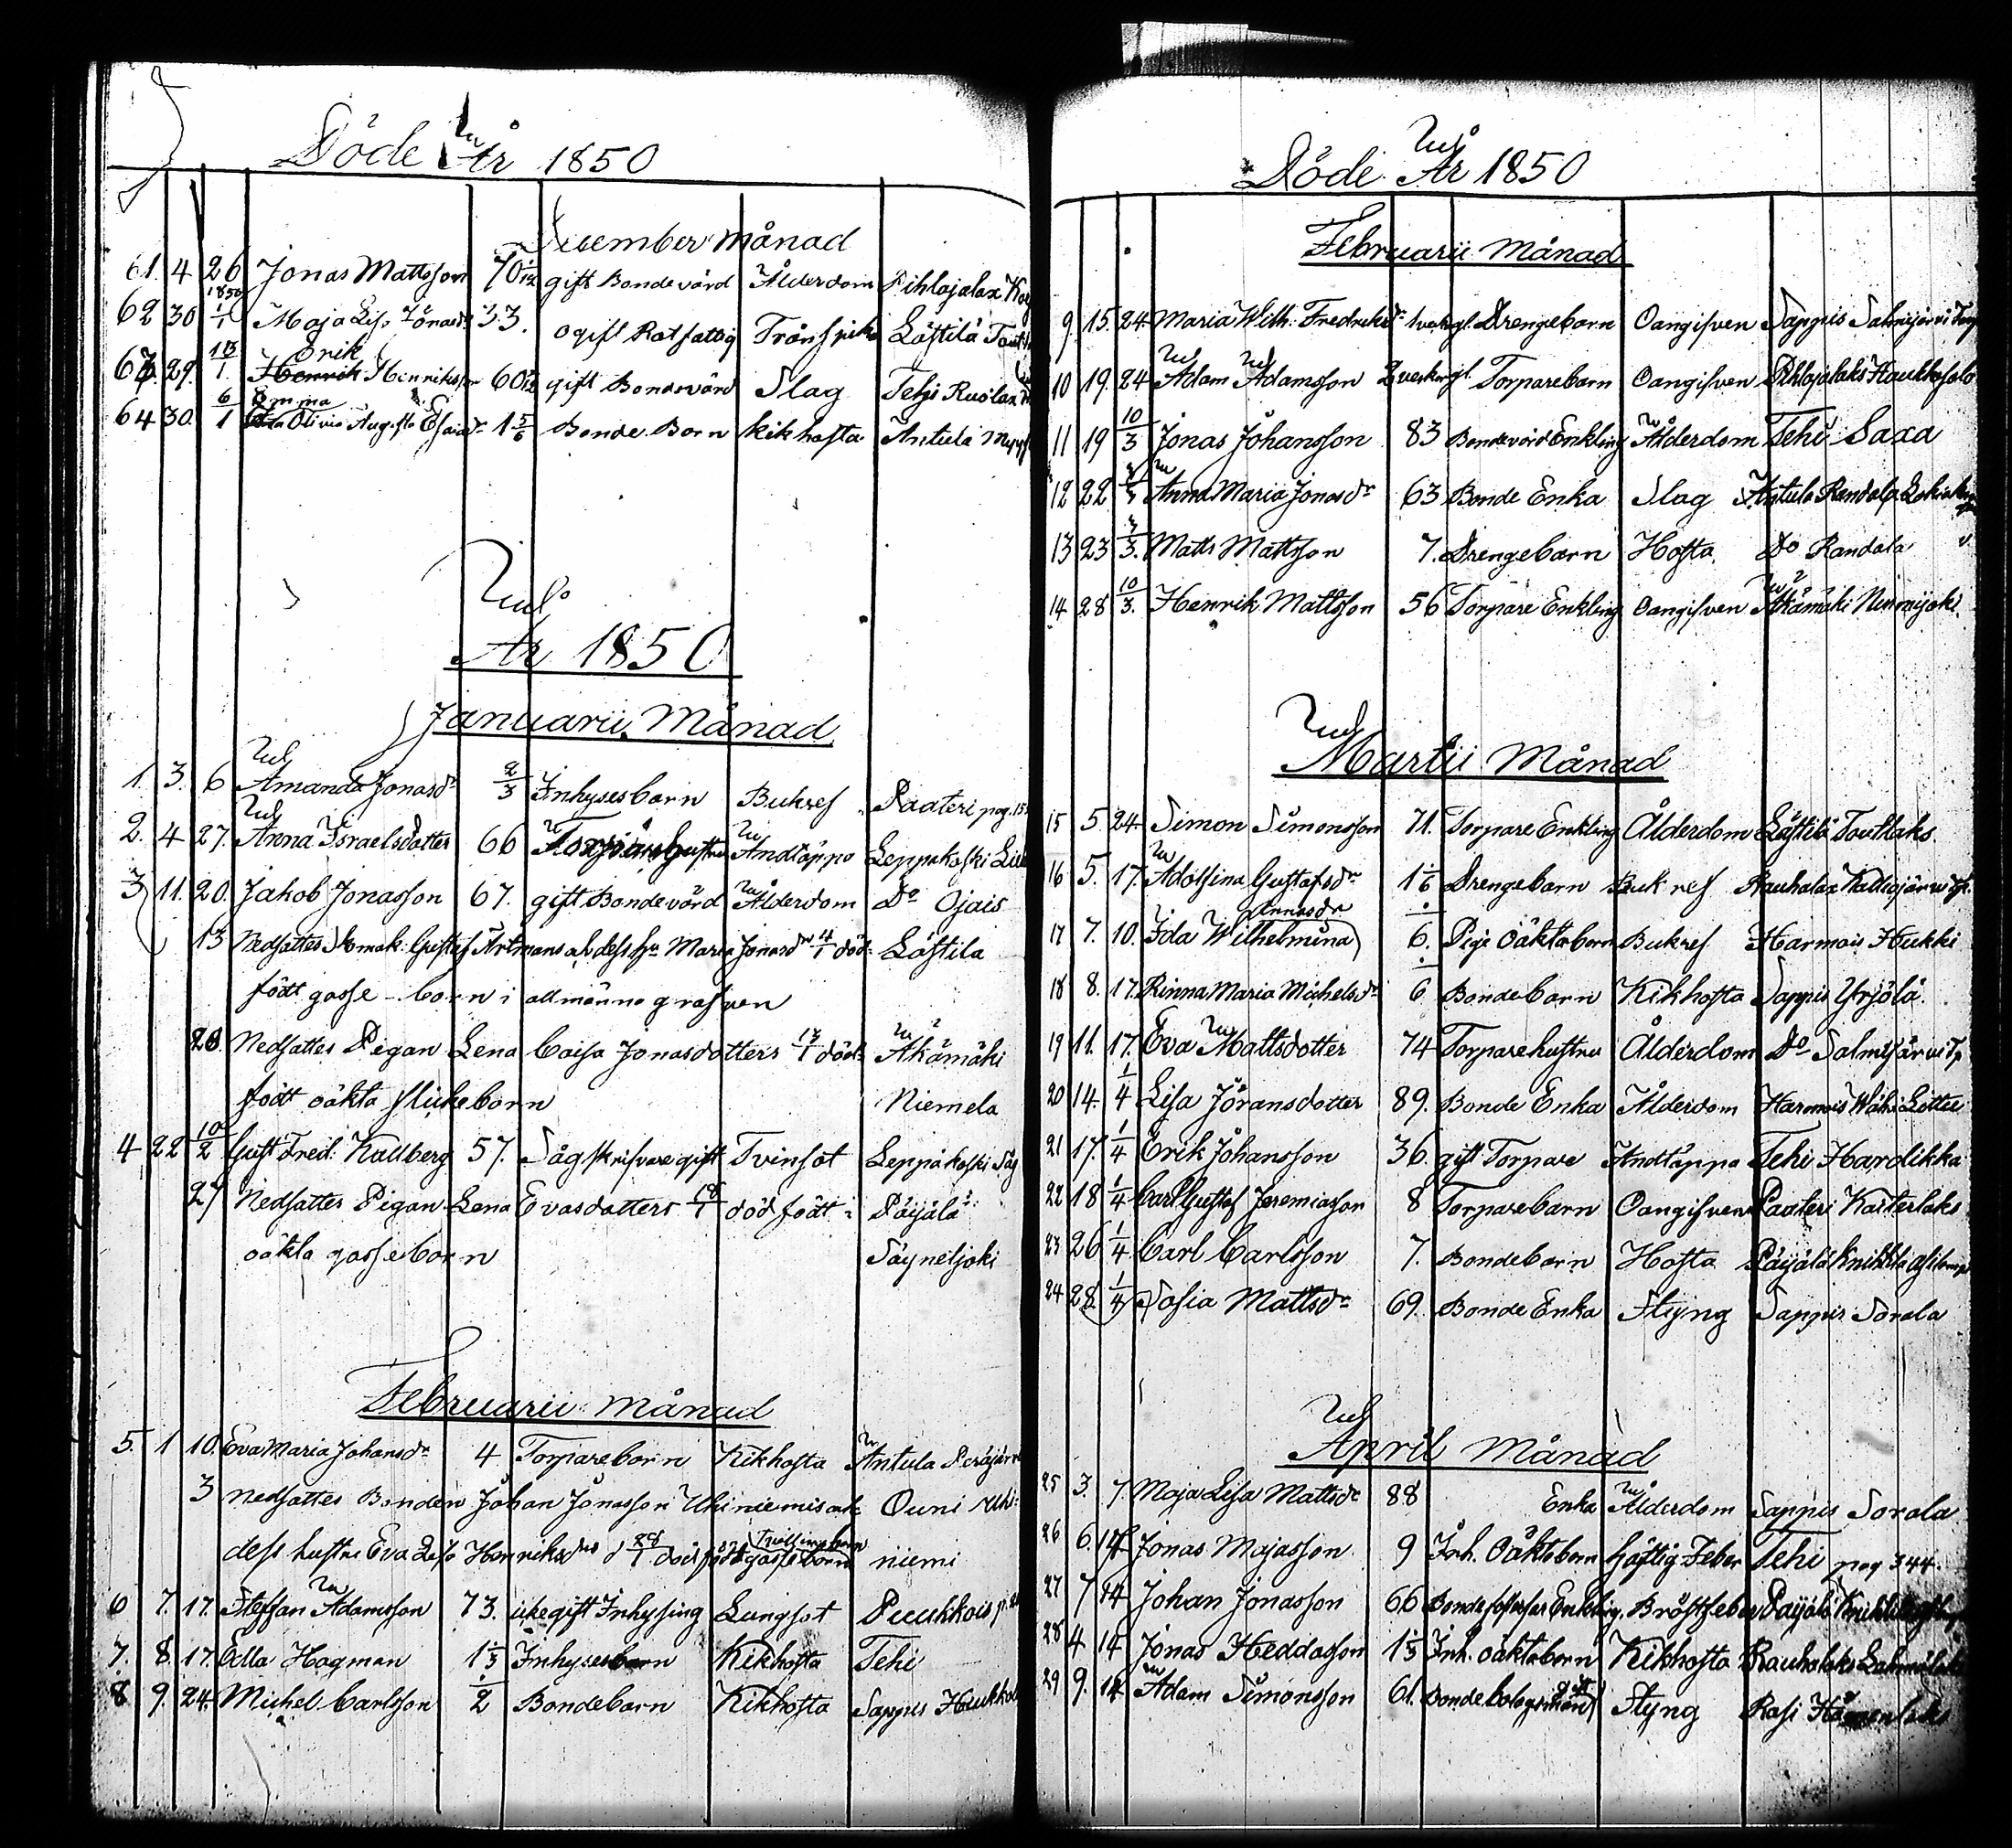 Döde År 1850
December månad
61. 4 26 Jonas Mattsson 70 1/12 gift Bondevärd Ålderdom Pihlajalax
62 30 1850 1/1 Maja Lis. Jöransdr 33. ogift Rotfattig Trånsjuka Låftilä
63. 29. 13/1 Erik Henriksson 60 gift Bondevärd Slag Tehi Ruolax
64 30. 6/1 Emma Olivia Augusta Esaiadr 1 5/6 Bonde Barn kikhosta Antula
År 1850
Januarii Månad
1. 3. 6 Amanda Jonasdr 2/3 Inhysesbarn Bukref Paateri pag. 15
2. 4 27. Anna Israelsdotter 66 Andtäppa Leppäkoski
3 11. 20. Jakob Jonasson 67. gift Bondevärd Ålderdom Do Ojais
13 Nedsattes Skomak. Gustaf Artmans och dess hu Maria Jonasdr 4/1 död- Låftila
född gosse-barn i allmänna grafven
20. Nedsattes Pigan Lena Caisa Jonasdotters 13/1 död- Äkämäki
född oäkta flickebarn Niemela
4 22 10/2 Gust. Fred. Kallberg 57. Sågskrifvare gift Tvinsot Leppäkoski Såg
27 Nedsattes Pigan Lena Evasdotters 18/1 död född- Päijälä
oäkta gossebarn Säyneljoki
Februarii månad
5. 1 10. Eva Maria Johansdr 4 Torparebarn Kikhosta Antula
3 Nedsattes Bonden Johan Jönasson Uhiniemis och Ouni Uhi-
dess hustru Eva Lisa Henriksdrs d 28/1 död född gossebarn Tvillingebarn niemi
6 7. 17. Steffan Adamsson 73. gift Inhysing Lungsot Puukkois
7. 8. 17. Edla Hagman 1 1/3 Inhysesbarn Kikhosta Tehi
8 9. 24. Michel Carlsson 1/2 Bondebarn Kikhosta Sappis
Döde År 1850
Februarii Månad
9. 15. 24. Maria Wilh. Fredriksdr 1 vek. gl. Drengebarn Oangifven Sappis Salmijärvi Torp
10 19. 24 Adam Adamsson 2 vekor gl. Torparebarn Oangifven Pihlajalaks Haukkasalo
11 19 10/3 Jonas Johansson 83 Bondevärd Enkling Ålderdom Tehi Saxa
12 22 3/3 Anna Maria Jonasdr 63 Bonde Enka Slag Antula Randala
13 23 3/3. Matts Mattsson 7. Drengebarn Hosta. Do Randala
14 28 10/3. Henrik Mattsson 56 Torpare Enkling Oangifven Äkämäki
Martii Månad
15 5. 24. Simon Simonsson 71. Torpare Enkling Ålderdom Låftilä Toutlaks.
16 5. 17. Adolfina Gustafsdr 1 1/6 Drengebarn Bukref Rauhalax
17 7. 10. Ida Wilhelmina Annasdr 6. Pige Oäktabarn Bukref Harmois Hukki
18 8. 17. Rinna Maria Michelsdr 6 Bondebarn Kikhosta Sappis Yrjölä.
19 11. 17. Eva Mattsdotter 74 Torparehustru Ålderdom Do Salmijärvi Tp
20 14. 1/4 Lisa Jöransdotter 89. Bonde Enka Ålderdom Harmois
21 17. 1/4 Erik Johansson 36. gift Torpare Andtäppa Tehi Hardikka
22 18 1/4 Carl Gustaf Jeremiasson 8 Torparebarn Oangifven Paateri Kaiterlaks
23 26 1/4 Carl Carlsson 7. Bondebarn Hosta Päijälä Knihtilä
24 28. 1/4 Sofia Mattsdr 69. Bonde Enka Styng Sappis Sorala
April Månad
25 3. 7 Maja Lisa Mattsdr 88 Enka Ålderdom Sappis Sorala
26 6. 14. Jonas Majasson 9 Inh. Oäktabarn häftig Feber Tehi pag 344.
27 7 14 Johan Jonasson 66 Enkling. Bröstfeber Päijälä
28 4 14 Jonas Heddasson 1 1/3 Inh. oäktabarn Kikhosta Rauhalaks
29 9. 14 Adam Simonsson 61. Bonde bolagsman gift Styng Rasi